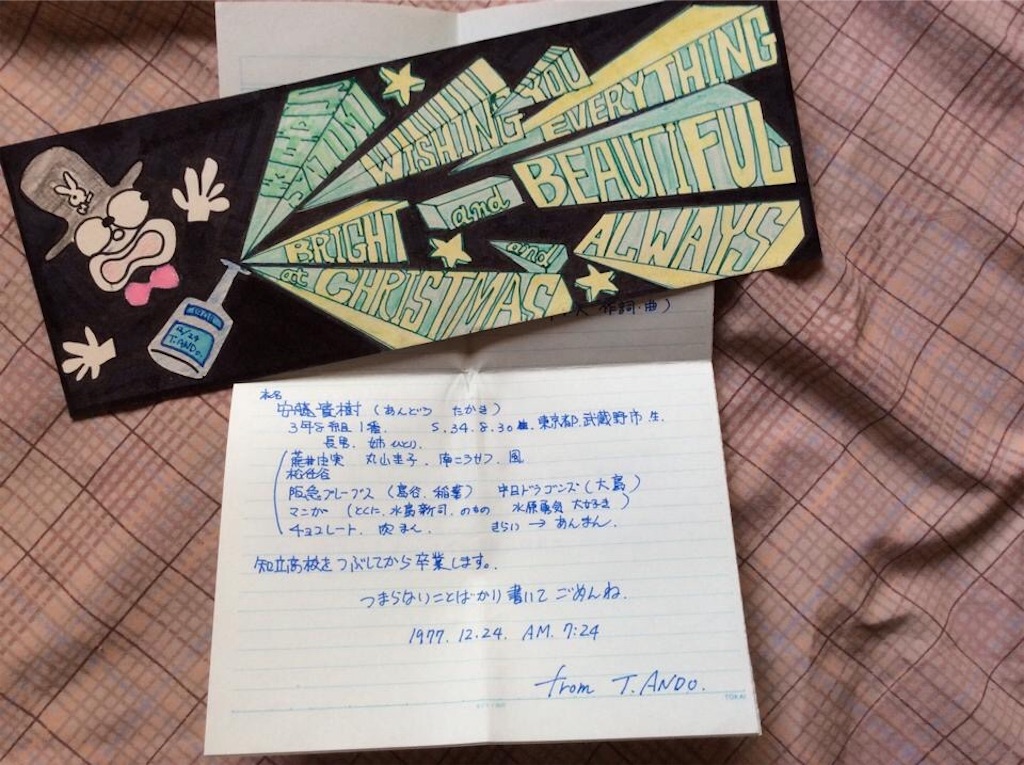 WISHING YOU
EVERYTHING
BEAUTIFUL
BRIGHT and
and ALWAYS
at CHRISTMAS
12/24
T. ANDO.
作詞・曲)
本名
安藤貴樹 (あんどう たかき)
3年8組1番. S.34.8.30生. 東京都.武蔵野市生.
長男. 姉ひとり.
藤井由実 丸山圭子. 南こうせつ. 風
松任谷
阪急ブレーブス (島谷.稲葉) 中日ドラゴンズ (大島)
マンガ (とくに.水島新司.のもの 水原勇気 大好き)
チョコレート. 肉まん. きらい → あんまん.
知立高校をつぶしてから卒業します。
つまらないことばかり書いてごめんね.
1977. 12. 24. AM. 7:24
from T. ANDO.